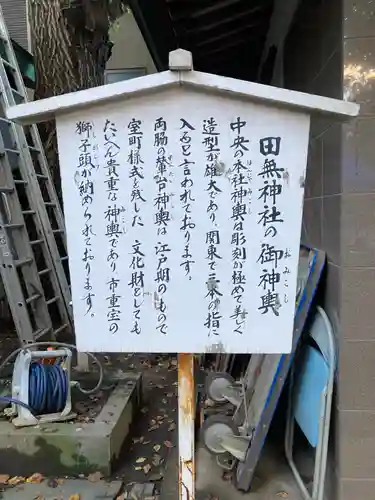 田無神社の御神輿
おみこし
中央の本社神輿は彫刻が極めて美しく
造型が雄大であり、関東で三本の指に
入ると言われております。
両脇の葦台神輿は、江戸期のもので
室町様式を残した、文化財としても
たいへん貴重な神輿であり市重宝の
獅子頭が納められております。